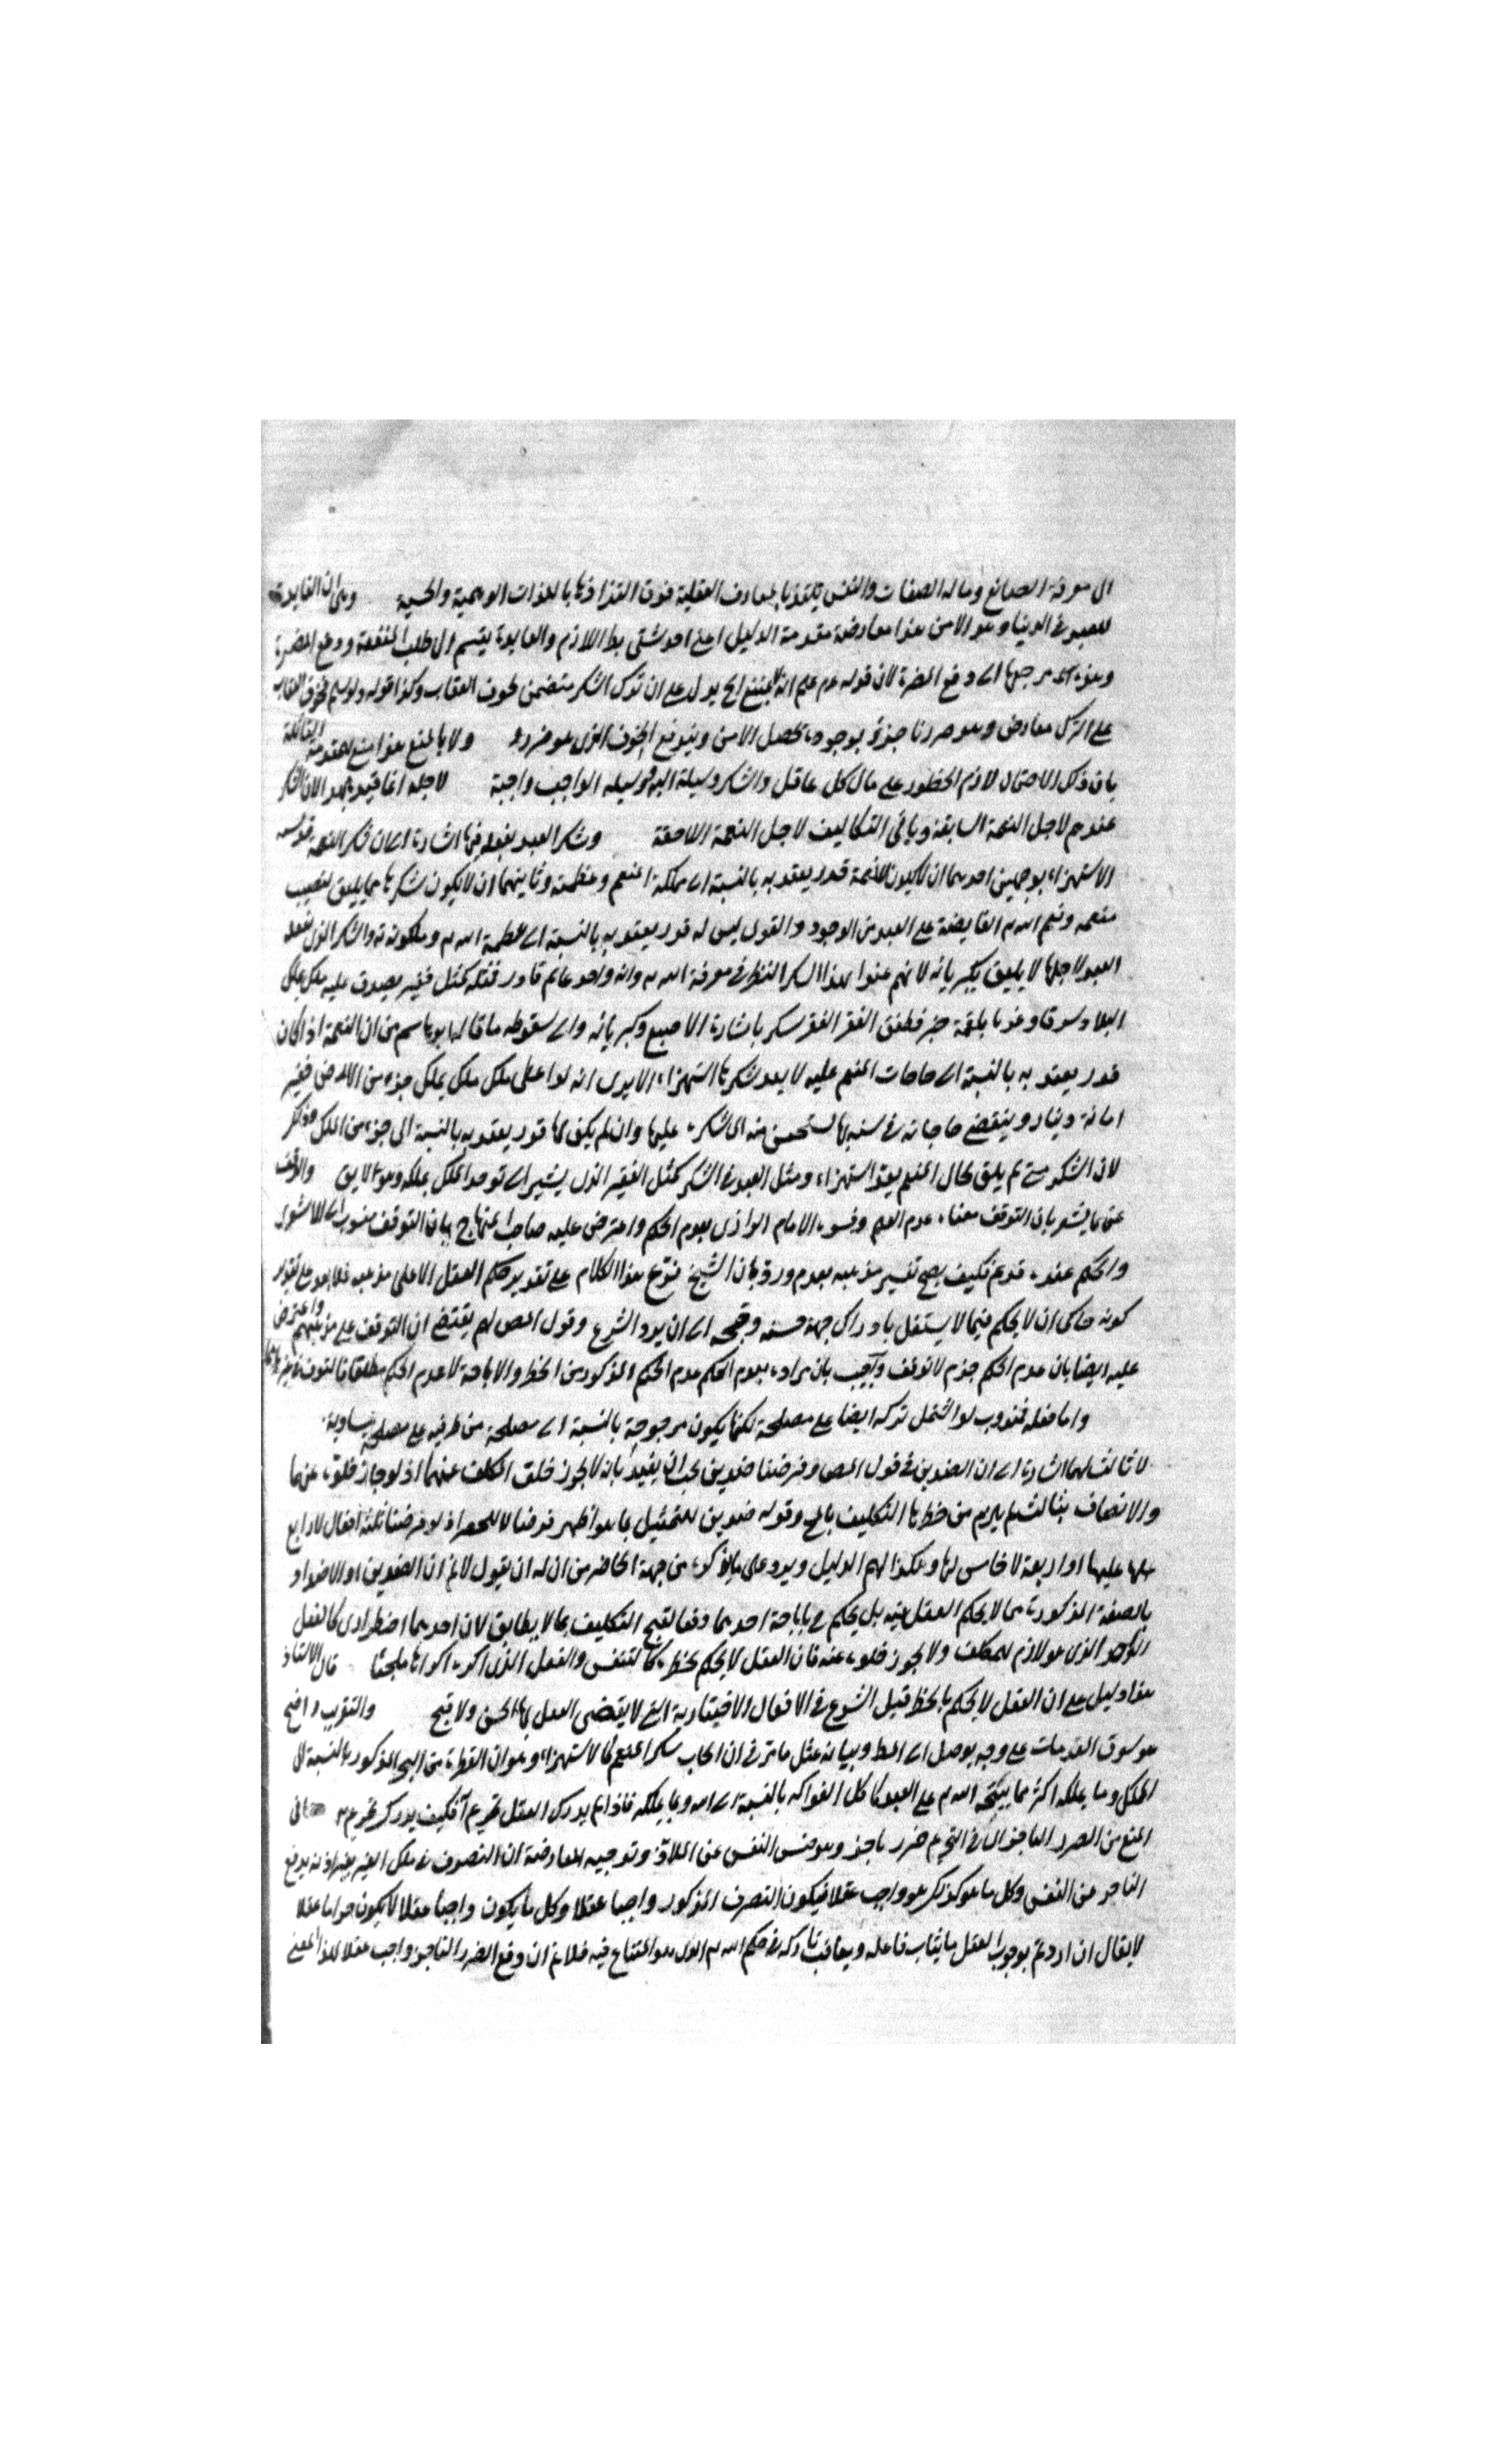 الى معرفة الصانع وما له الصفات والنفس يلتذ بالمعارف العقلية فوق التذاذها باللذات الوهمية والحسية وهى ان الفايدة
للعبد فى الدنيا وهو الامن هذا معارضة مقدمة الدليل اعنى احد شقى بط اللازم والفايدة ينقسم الى طلب المنفعة ودفع المضرة
وهذه مرجعها الى دفع المضرة لان قوله عدم الخ يدل على ان ترك الشكر متضمن لخوف العقاب وكذا قوله ولو سلم فخوف العقاب
على الترك معارض وهو صدرنا جزؤ بوجوده تحصل الامن ويندفع الخوف الذى هو ضرره ولا بالمنع هذا منع للمقدمة القائلة
بان ذلك الاحتمال لازم الخطور على بال كل عاقل والشكر وسيلة اليه ووسيلة الواجب واجبة لاجله انما قيد بهذا لان الشكر
عندهم لاجل النعمة السابقة وباقى التكاليف لاجل النعمة اللاحقة وشكر العبد بفعله فيها اشارة الى ان شكر النعمة
الاستهزاء بوجهين احدهما ان لا يكون للنعمة قدر يعتد به بالنسبة الى مملكة المنعم وعظمته وثانيهما ان لا يكون شكرها مما يليق بمنصب
منعمه ونعم الله تم الفايضة على العبد من الوجود والقول ليس له قدر يعتد به بالنسبة الى عظمة الله تم وملكوته والشكر الذى يفعله
العبد لاجلها لا يليق بكبريائه لانهم عنوا بهذا الشكر النظر فى معرفة الله تم وانه واحد عالم قادر فمثله كمثل فقير يصدق عليه ملك ملك
البلاد شرقا وغربا بلقمة خبز فطفق الفقير يشكر باشارة الاصبع وكبريائه والى سقوط ما قاله ابو هاشم من ان النعمة اذا كان
قدر يعتد به بالنسبة الى حاجات المنعم عليه لا يعد شكرها استهزاء الا يرى انه لو اعطى ملك ملك يملك جزء من الارض فقير
امائة دينار وينقضى حاجاته فى سنه بها لستحسن منه الشكر عليها وان لم يكن لها قدر يعتد به بالنسبة الى جزء من الملك
لان الشكر متى لم يلق بحال المنعم يعد استهزاء ومثل العبد فى الشكر كمثل الفقير الذى يشير الى توحد الملك بملكه وهو لا يليق والوقف
عن ما يشعر بان التوقف معناه عدم العلم وفسره الامام الرازى بعدم الحكم واعترض عليه صاحب المنهاج بان التوقف منسوب الى الاشعرى
والحكم عنده قديم فكيف يصح تفسير مذهبه بعدمه ورد بان الشيخ فرع هذا الكلام على تقدير حكم العقل لا على مذهبه فلا بعد على تقدير
كونه حاكى ان لا يحكم فيما لا يستقل بادراك جهة حسنه وقبحه الى ان يرد الشرع وقول المص لم يقتضى ان التوقف على مذهبهم واعترض
عليه ايضا بان عدم الحكم جزم لا توقف واجيب بان مراده بعدم الحكم عدم الحكم المذكور من الحظر والاباحة لا عدم الحكم مطلقا
واما فعله فندوب لو اشتمل تركه ايضا على مصلحة لكنها يكون مرجوحة بالنسبة الى مصلحة من طرفيه على مصلحة متساوية
لا ثالث لهما اشارة الى ان الضدين فى قول المص وفرضنا ضدين يجب ان يقيد بانه لا يجوز خلو المكلف عنهما اذ لو جاز خلوه عنهما
والاتصاف بثالث لم يلزم من حظرها التكليف بالمح وقوله ضدين للتمثيل بما هو اظهر فرضا لا للحصر اذ لو فرضنا ثلثة افعال لا رابع
لها عليها او اربعة لا خامس لها وهكذا لهم الدليل ويرد على ما يذكره من جهة الحاضر من ان له ان يقول لا نم ان الضدين او الاضداد
بالصفة المذكورة مما لا يحكم العقل فيه بل يحكم باباحة احدهما دفعا لقبح التكليف بما لا يطاق لان احدهما اضطرارى كالفعل
الواحد الذى هو لازم للمكلف ولا يجوز خلوه عنه فان العقل لا يحكم بحظره كالتنفس والفعل الذى اكره اكراها ملجئا قال الاستاذ
هذا دليل على ان العقل لا يحكم بالحظر قبل الشرع فى الافعال الاختيارية التى لا يقضى العقل بها بحسن ولا قبح والتقريب واضح
هو سوق المقدمات على وجه يوصل الى المط وبيانه بمثل ما مر فى ان ايجاب شكر المنعم كالاستهزاء وهو ان القطرة من البحر المذكور بالنسبة الى
الملك وما يملكه اكثر مما يبيحه الله تم على العبد كاكل الفواكه بالنسبة الى الله وما يملكه فاذا لم يدرك العقل تحريم فكيف يدرك تحريم
المنع من الضرر الناجز الى فى التحريم ضرر ناجز وهو حبس النفس عن الملاذ وتوجيه المعارضة ان التصرف فى ملك الغير بغير اذنه يدفع
الناجز عن النفس وكل ما هو كذلك هو واجب عقلا فيكون التصرف المذكور واجبا عقلا وكل ما يكون واجبا عقلا لا يكون حراما عقلا
لا يقال ان اردتم بوجوب العقل ما يثاب فاعله ويعاقب تاركه فى حكم الله تم الذى هو المتنازع فيه فلا نم ان دفع الضرر الناجز واجب عقلا بهذا المعنى